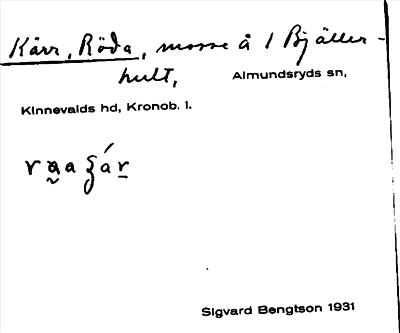 Kärr, Röda, mosse å 1 Bjäller-
hult, Almundsryds sn,
Kinnevalds hd, Kronob. l.
Sigvard Bengtson 1931